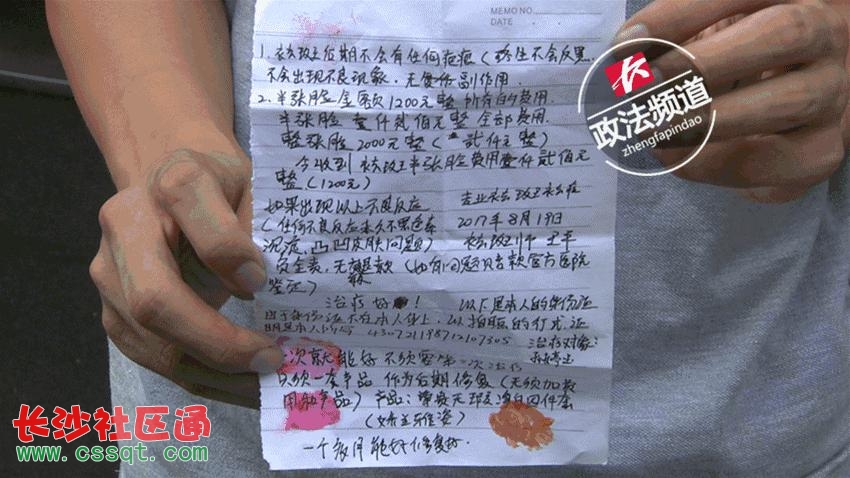 MEMO NO.
DATE
1. 祛斑后期不会有任何疤痕(终生不会反黑
不会出现不良现象,无任何副作用
2. 半张脸全额1200元整 所有的费用
半张脸 壹仟贰佰元整 全部费用
整张脸2000元整( 贰仟元整)
今收到 祛斑半张脸费用壹仟贰佰元
整(1200元)
如果出现以上不良反应
专业祛斑祛痘
(任何不良反应永久不黑色素
2017年8月19日
沉淀、凸凹皮肤问题)
祛斑师 王平
负全责,无 款(如有问题 赔款官方医院
鉴定)
治疗好!
以下是本人的身份证
由于身份证不在本人身上,以拍照的行式证
治疗对象:
一次就能好 不须要第二次治疗
只须一套产品 作为后期修复(无须加数
用 产品)产品: 无斑 净白四件套
一个多月能好修复好.
政法频道
zhengfapindao
长沙社区通
www.cssqt.com